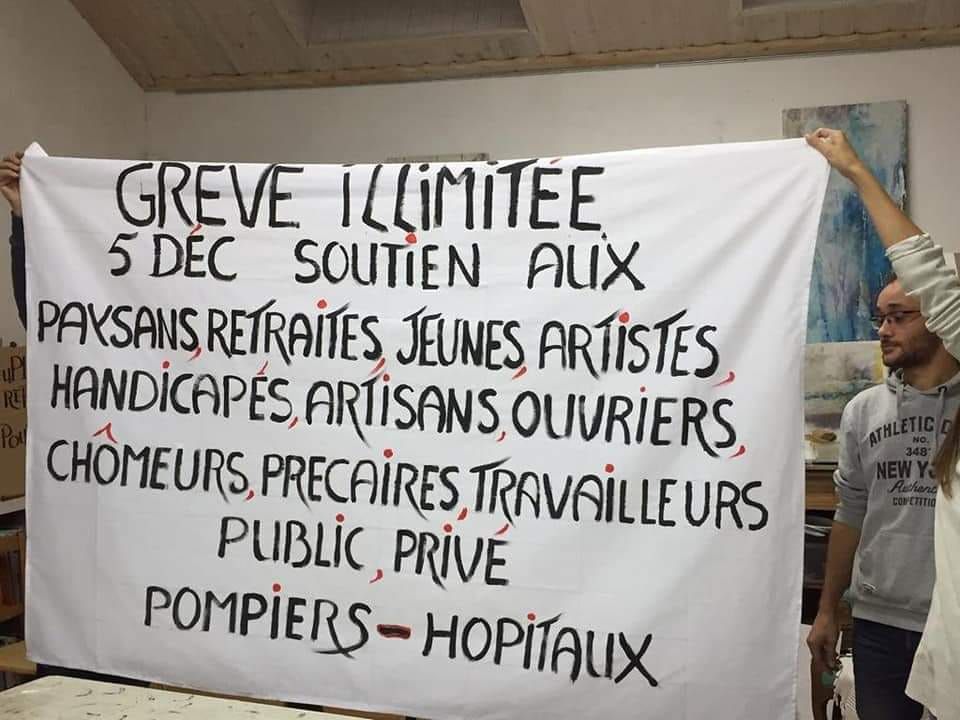 GREVE iLLiMiTÉE
5 DÉC SOUTiEN AUX
PAYSANS, RETRAiTES, JEUNES, ARTiSTES,
HANDiCAPÉS, ARTiSANS, OUVRiERS,
CHÔMEURS, PRECAiRES, TRAVAiLLEURS
PUBLiC, PRiVÉ
POMPiERS - HOPiTAUX
ATHLETIC
NO.
348
NEW
COMPETITIO